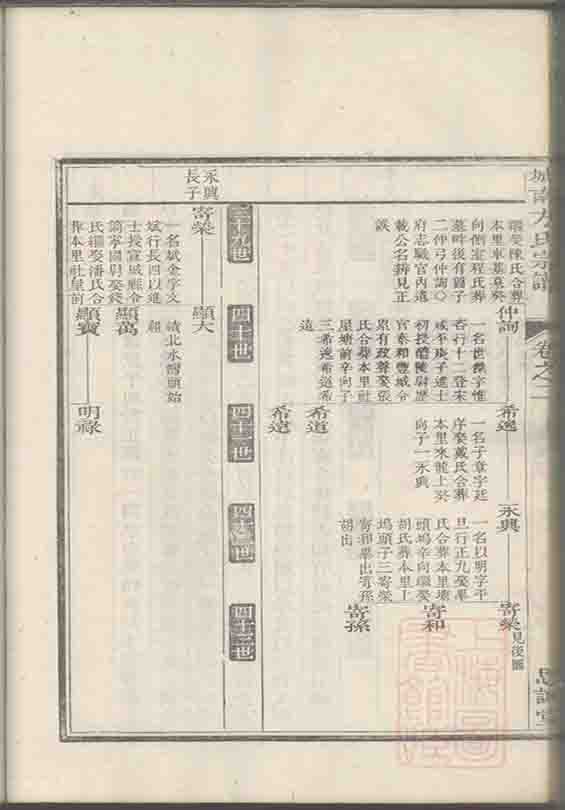 城南方氏宗譜
卷之二
思誠堂
繼娶陳氏合葬
本里車墓意癸
向側室程氏葬
墓畔後有爵子
二仲弓仲詢〇
府志職官內遺
載公名辨見正
誤
仲詢
一名世傑字惟
吝行十二登宋
咸平庚子進士
初授醴陵尉歷
官泰和豐城令
累有政聲娶張
氏合葬本里社
屋塘前辛向子
三希逸希道希
遠
希逸
一名子章字廷
序娶戴氏合葬
本里來龍上癸
向子一永興
希道
希遠
永興
一名以明字平
旦行正九娶畢
氏合葬本里塘
頭塢辛向繼娶
胡氏葬本里上
塢頭子三寄榮
寄和畢出寄孫
胡出
寄榮見後圖
寄和
寄孫
三十九世
四十世
四十一世
四十二世
四十三世
永興
長子
寄榮
一名斌金字文
斌行長四以進
士授宣城縣令
簡寧國尉娶錢
氏繼娶潘氏合
葬本里社呈前
顯大
績北水灣頭始
祖
顯萬
顯寶
明祿
上海圖
書館藏